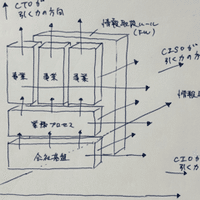 CTOが
引く力の方向
情報施設ルール
事業
事業
事業
CISOが
引く力の方
業務プロセス
情報
会社基盤
CIOが
引く力